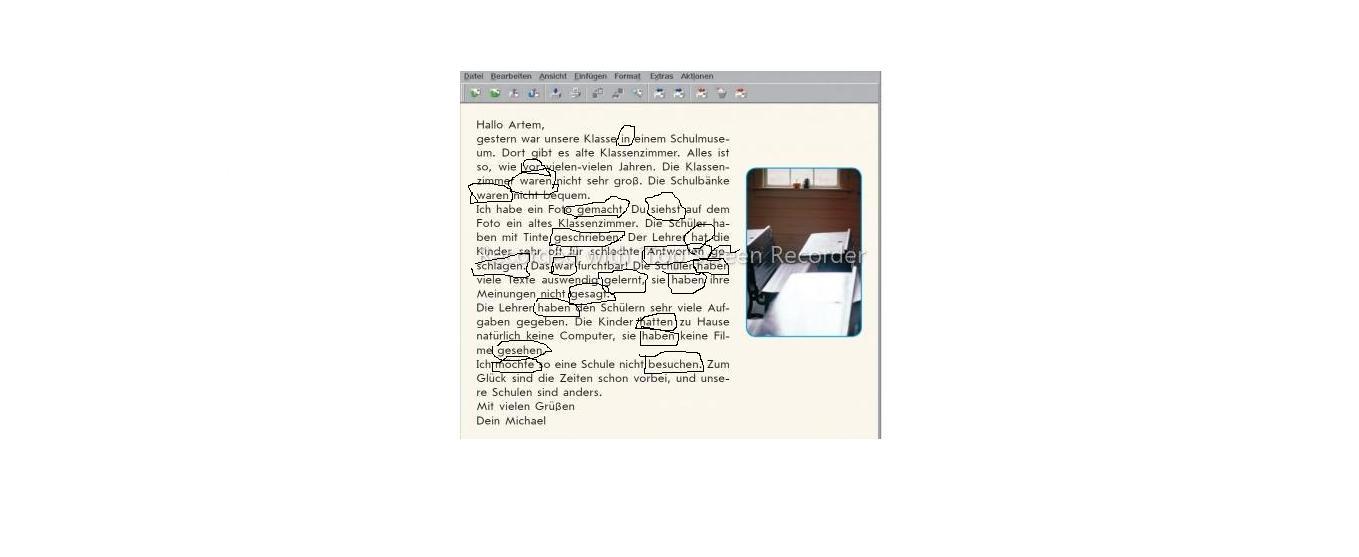 Datei Bearbeiten Ansicht Einfügen Format Extras Aktionen
Hallo Artem,
gestern war unsere Klasse in einem Schulmuse-
um. Dort gibt es alte Klassenzimmer. Alles ist
so, wie vor vielen-vielen Jahren. Die Klassen-
zimmer waren nicht sehr groß. Die Schulbänke
waren nicht bequem.
Ich habe ein Foto gemacht. Du siehst auf dem
Foto ein altes Klassenzimmer. Die Schüler ha-
ben mit Tinte geschrieben. Der Lehrer hat die
Kinder sehr oft für schlechte Antworten ge-
schlagen. Das war furchtbar! Die Schüler haben
viele Texte auswendig gelernt, sie haben ihre
Meinungen nicht gesagt.
Die Lehrer haben den Schülern sehr viele Auf-
gaben gegeben. Die Kinder hatten zu Hause
natürlich keine Computer, sie haben keine Fil-
me gesehen.
Ich möchte so eine Schule nicht besuchen. Zum
Glück sind die Zeiten schon vorbei, und unse-
re Schulen sind anders.
Mit vielen Grüßen
Dein Michael